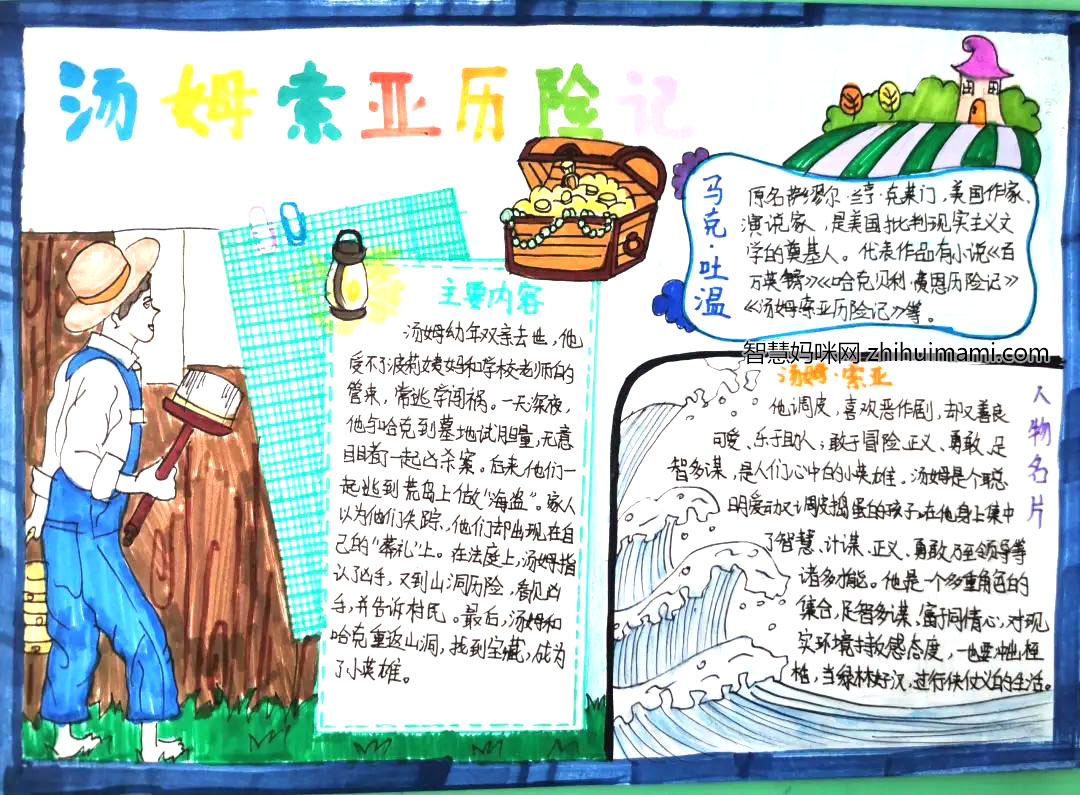 汤姆索亚历险记
马克·吐温
原名萨缪尔·兰亨·克莱门,美国作家、
演说家,是美国批判现实主义文
学的奠基人。代表作品有小说《百
万英镑》《哈克贝利·费恩历险记》
《汤姆索亚历险记》等。
智慧妈咪网·zhihuimami.com
主要内容
汤姆幼年双亲去世,他
受不了波莉姨妈和学校老师的
管束,常逃学闯祸。一天深夜,
他与哈克到墓地试胆量,无意
目睹了一起凶杀案。后来他们一
起逃到荒岛上做“海盗”。家人
以为他们失踪,他们却出现在自
己的“葬礼”上。在法庭上,汤姆指
认了凶手,又到山洞历险,看见凶
手,并告诉村民。最后,汤姆和
哈克重返山洞,找到宝藏,成为
了小英雄。
汤姆·索亚
人物名片
他调皮,喜欢恶作剧,却又善良
可爱、乐于助人;敢于冒险、正义、勇敢、足
智多谋,是人们心中的小英雄。汤姆是个聪
明爱动又调皮捣蛋的孩子,在他身上集中
了智慧、计谋、正义、勇敢乃至领导等
诸多才能。他是一个多重角色的
集合,足智多谋、富于同情心,对现
实环境持敌感态度,一心要冲出桎
梏,当绿林好汉,过行侠仗义的生活。